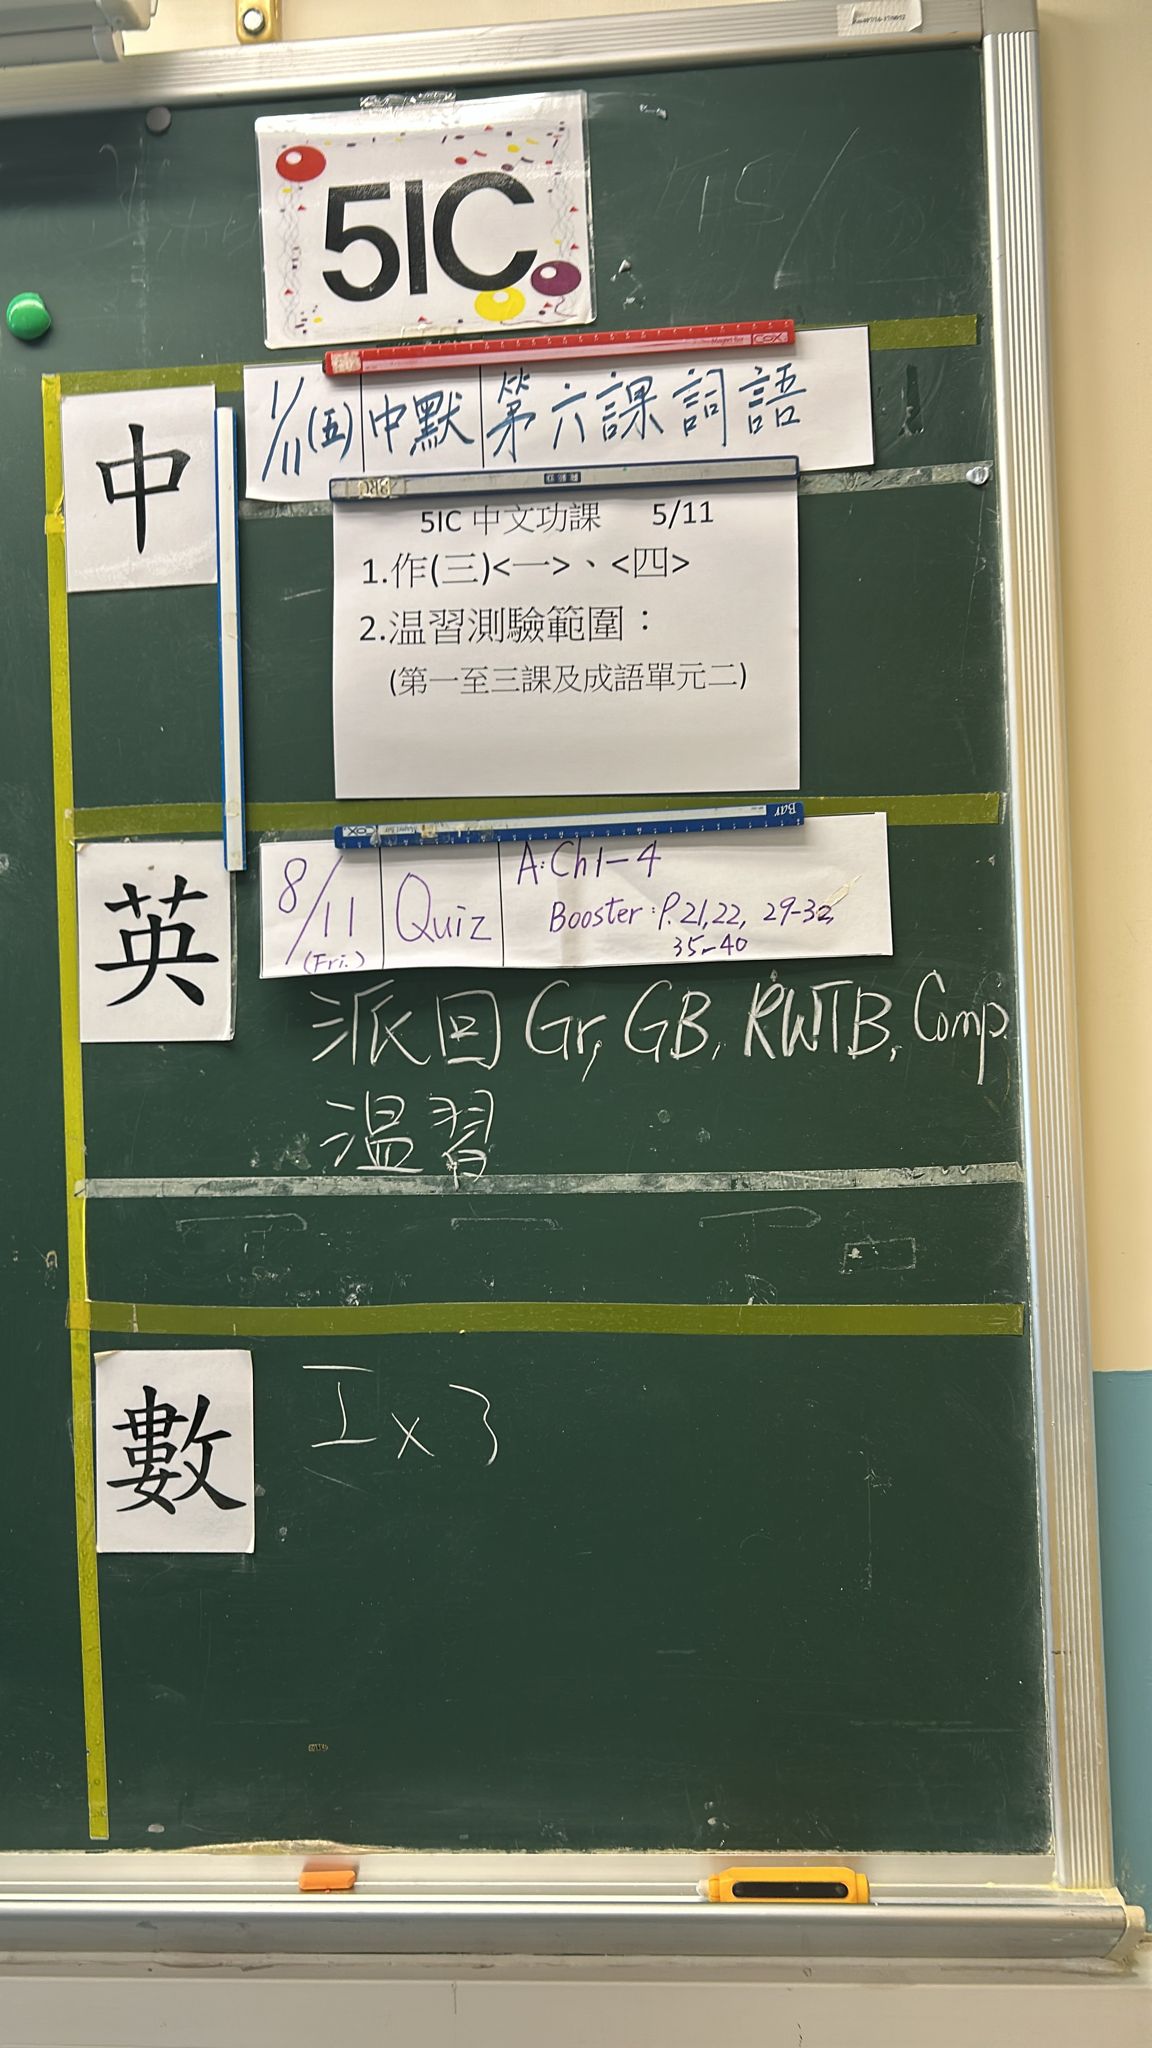 5IC
中
1/11(五) 中默 第六課詞語
5IC 中文功課 5/11
1.作(三)<一>、<四>
2.温習測驗範圍：
(第一至三課及成語單元二)
英
8/11 (Fri.) Quiz A: Ch1-4
Booster: P.21,22, 29-32,
35-40
派回 Gr, GB, RWTB, Comp.
温習
數
工 x 3